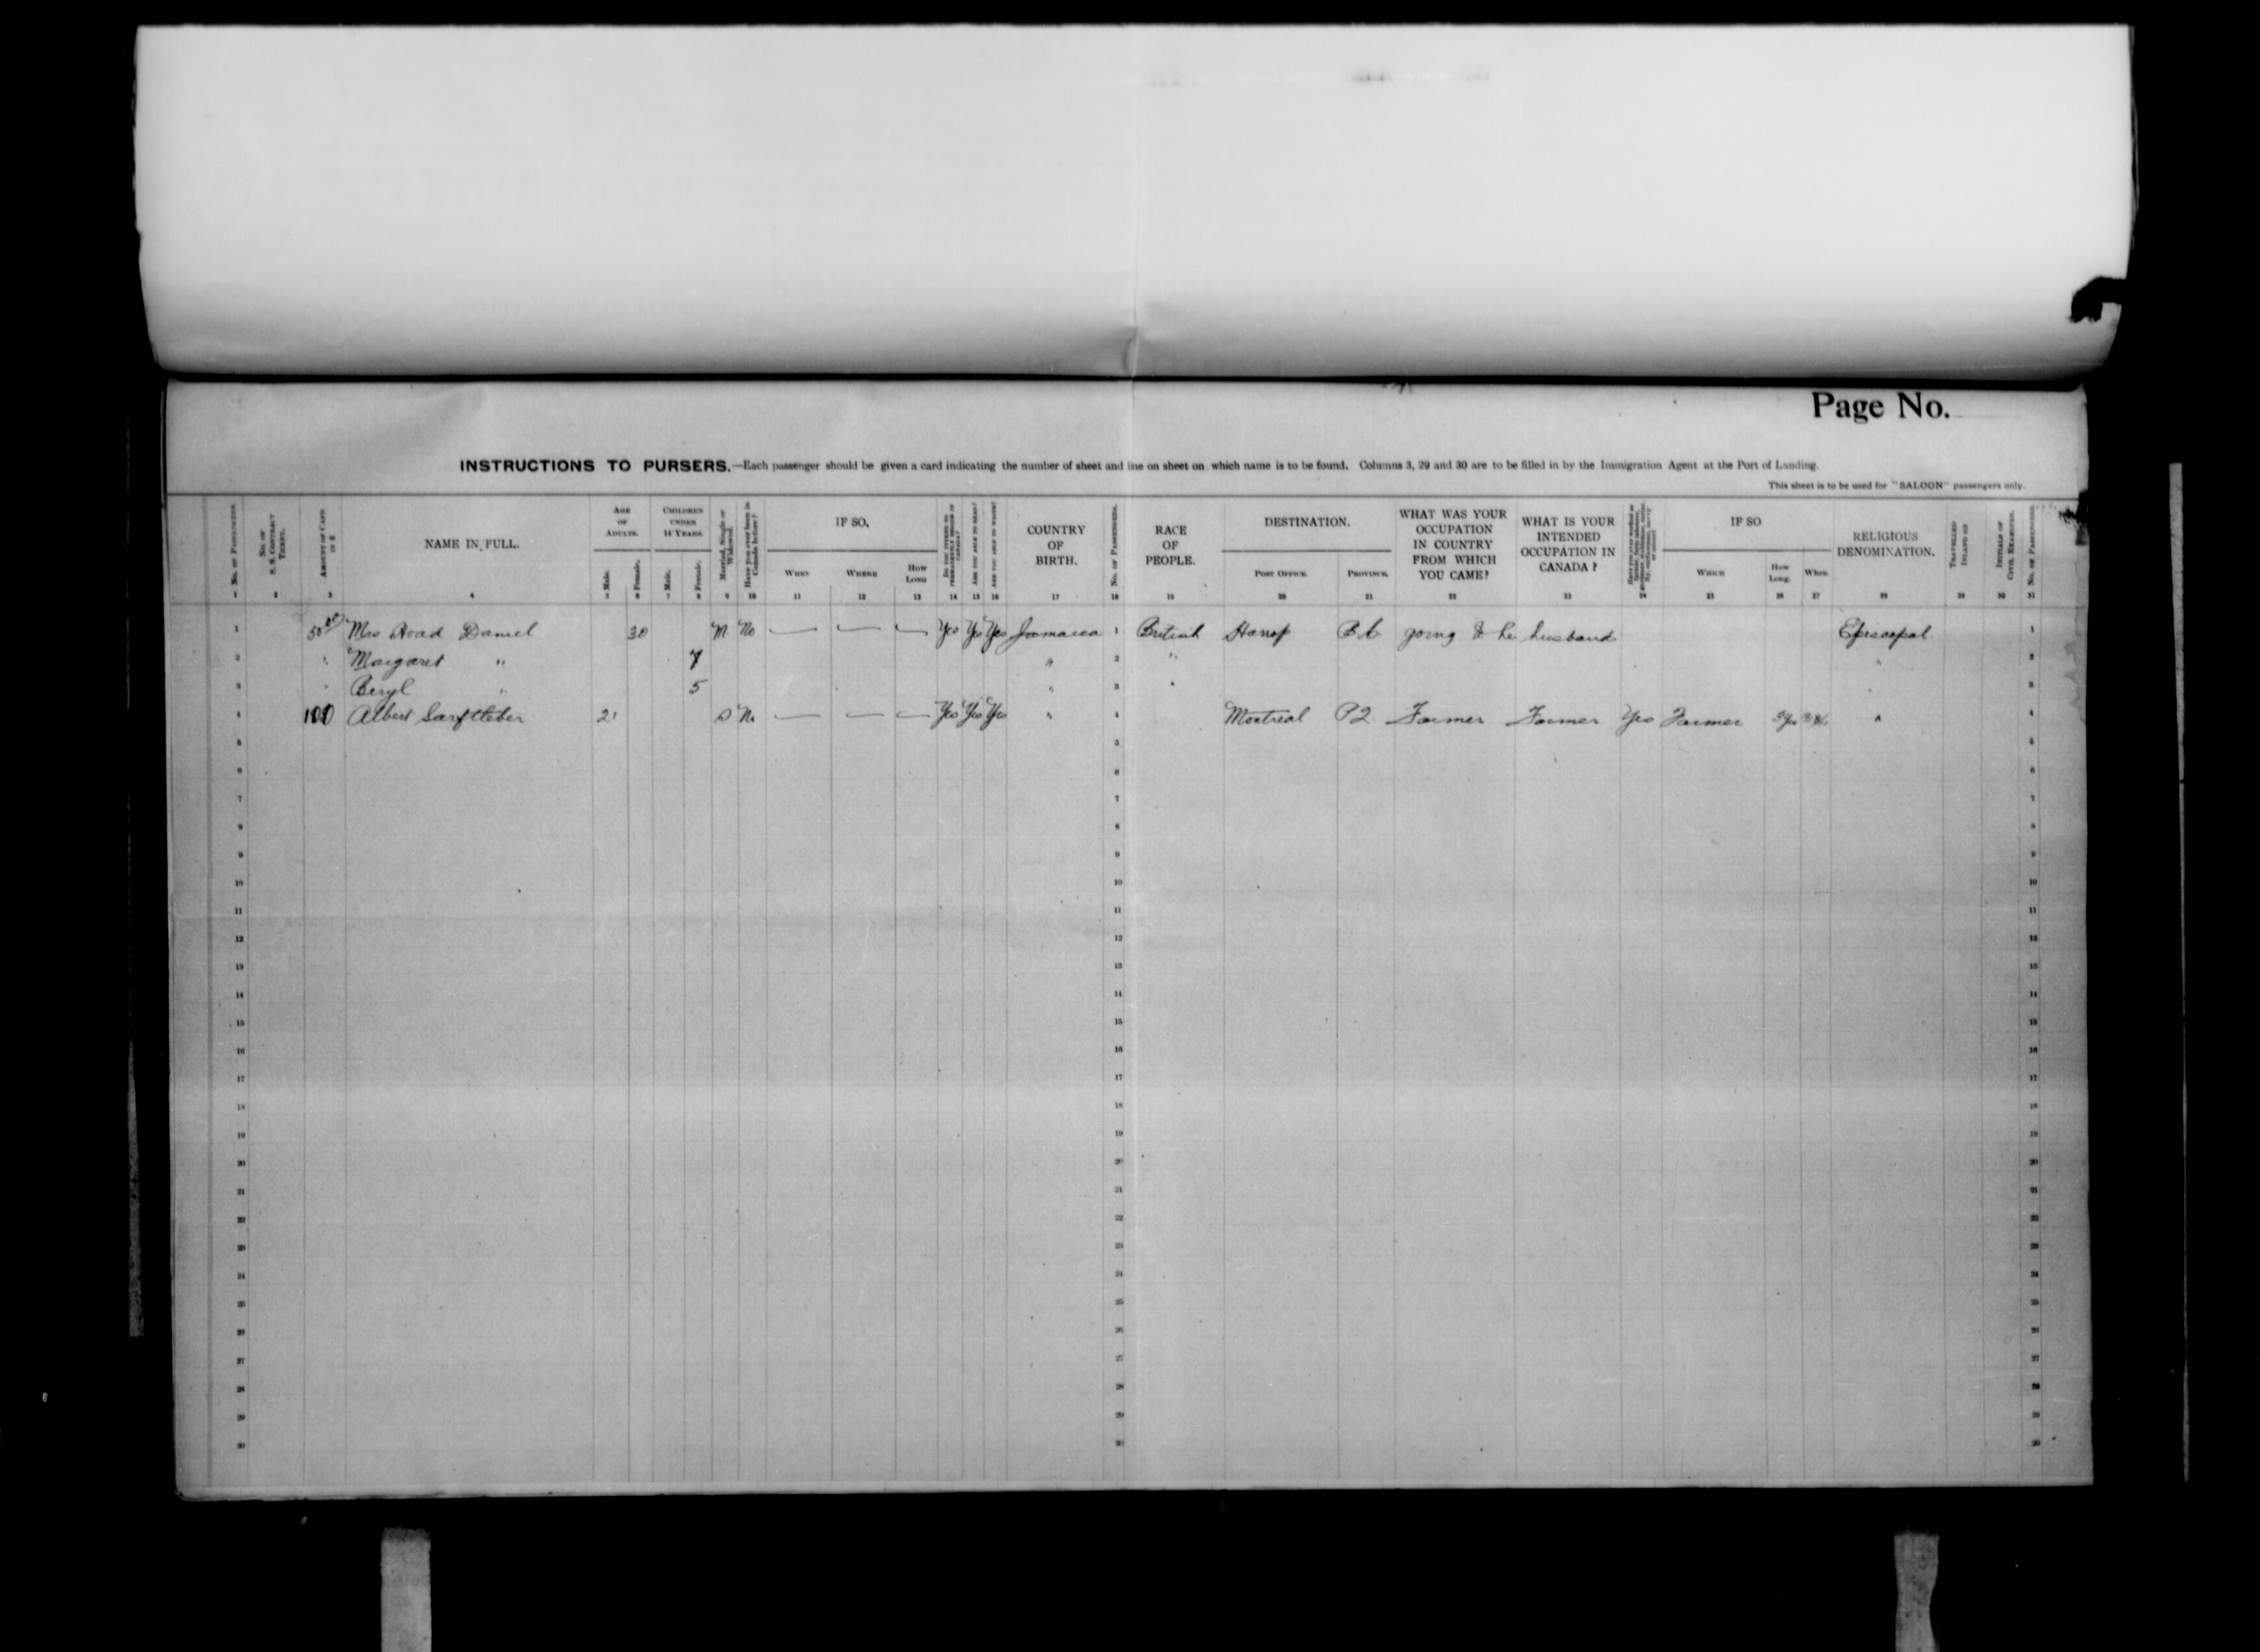 Page No.
INSTRUCTIONS TO PURSERS.—Each passenger should be given a card indicating the number of sheet and line on sheet on which name is to be found. Columns 3, 29 and 30 are to be filled in by the Immigration Agent at the Port of Landing.
This sheet is to be used for "SALOON" passengers only.
No. of Passengers. No. of S. S. Contract Ticket. Amount of Cash in $ NAME IN FULL. Age of Adults. Children under 14 Years. Married, Single or Widowed. Have you ever been in Canada before? IF SO, Do you intend to permanently reside in Canada? Are you able to read? Are you able to write? COUNTRY OF BIRTH. No. of Passengers. RACE OF PEOPLE. DESTINATION. WHAT WAS YOUR OCCUPATION IN COUNTRY FROM WHICH YOU CAME? WHAT IS YOUR INTENDED OCCUPATION IN CANADA? IF SO RELIGIOUS DENOMINATION. Travelled Inland on Initials of Civil Examiner. No. of Passengers.
Male. Female. Male. Female. When Where How Long Post Office. Province. Which How Long. When
1 2 3 4 5 6 7 8 9 10 11 12 13 14 15 16 17 18 19 20 21 22 23 24 25 26 27 28 29 30 31
1 50 00 Mrs Daniel 30 M No — — — Yes Yes Yes Jamaica 1 British Harrop B.C going to he husband Episcopal 1
2 " Margaret " 7 " 2 " " 2
3 " Beryl " 5 " 3 " 3
4 100 Albert 21 S No — — — Yes Yes Yes " 4 Montreal PQ Farmer Farmer Yes Farmer 5 Yrs " 4
5 5 5
6 6 6
7 7 7
8 8 8
9 9 9
10 10 10
11 11 11
12 12 12
13 13 13
14 14 14
15 15 15
16 16 16
17 17 17
18 18 18
19 19 19
20 20 20
21 21 21
22 22 22
23 23 23
24 24 24
25 25 25
26 26 26
27 27 27
28 28 28
29 29 29
30 30 30